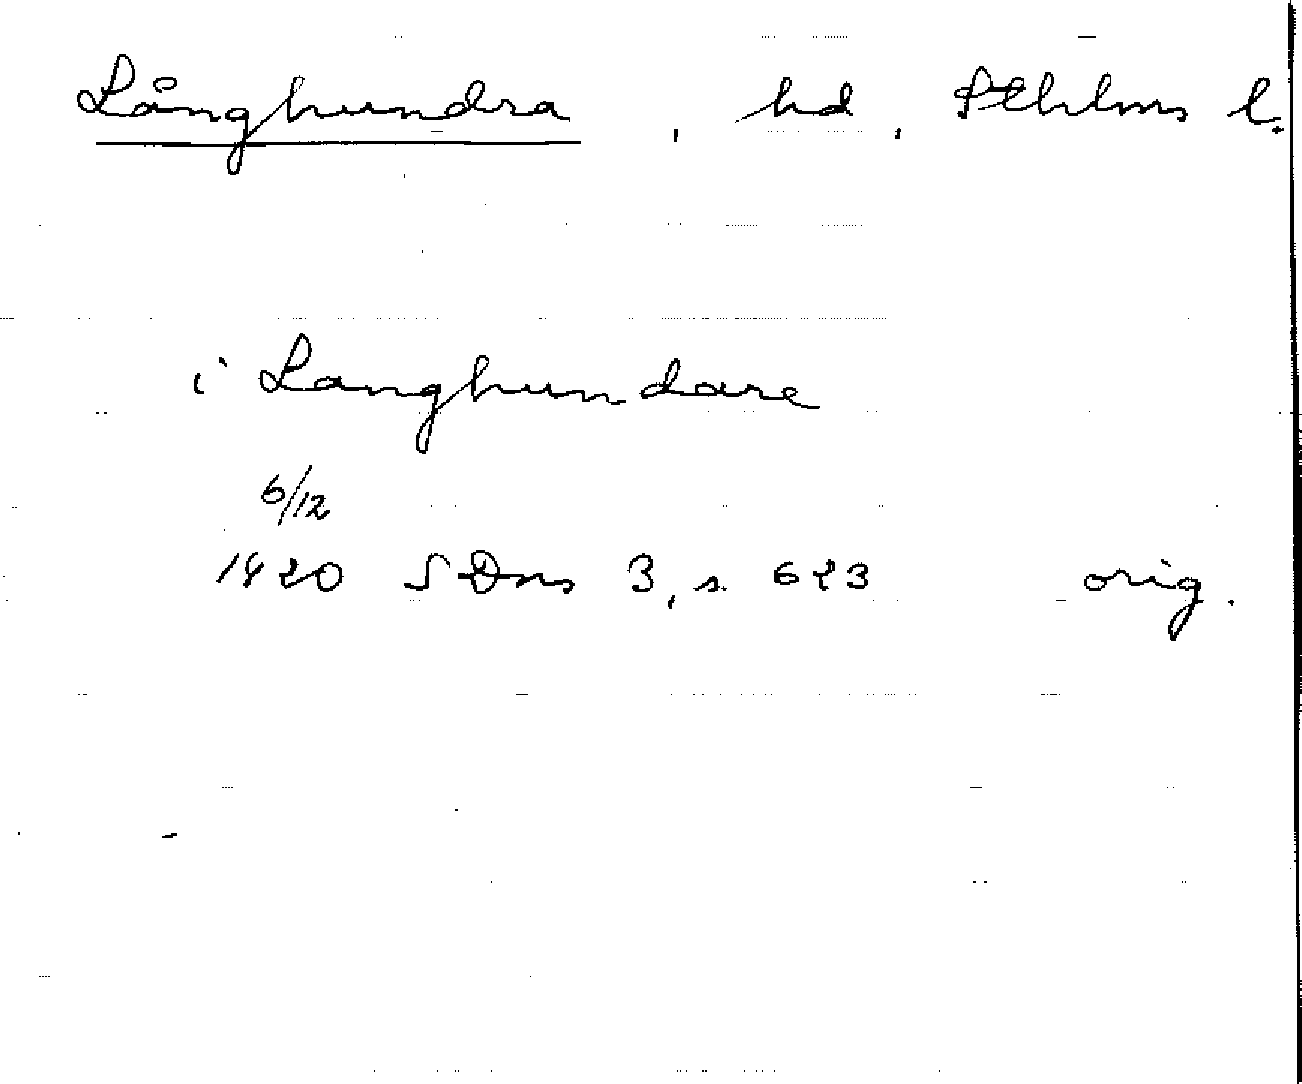 Långhundra, hd, Sthlms l.
i Langhundare
6/12
1420 SDns 3, s. 623 orig.